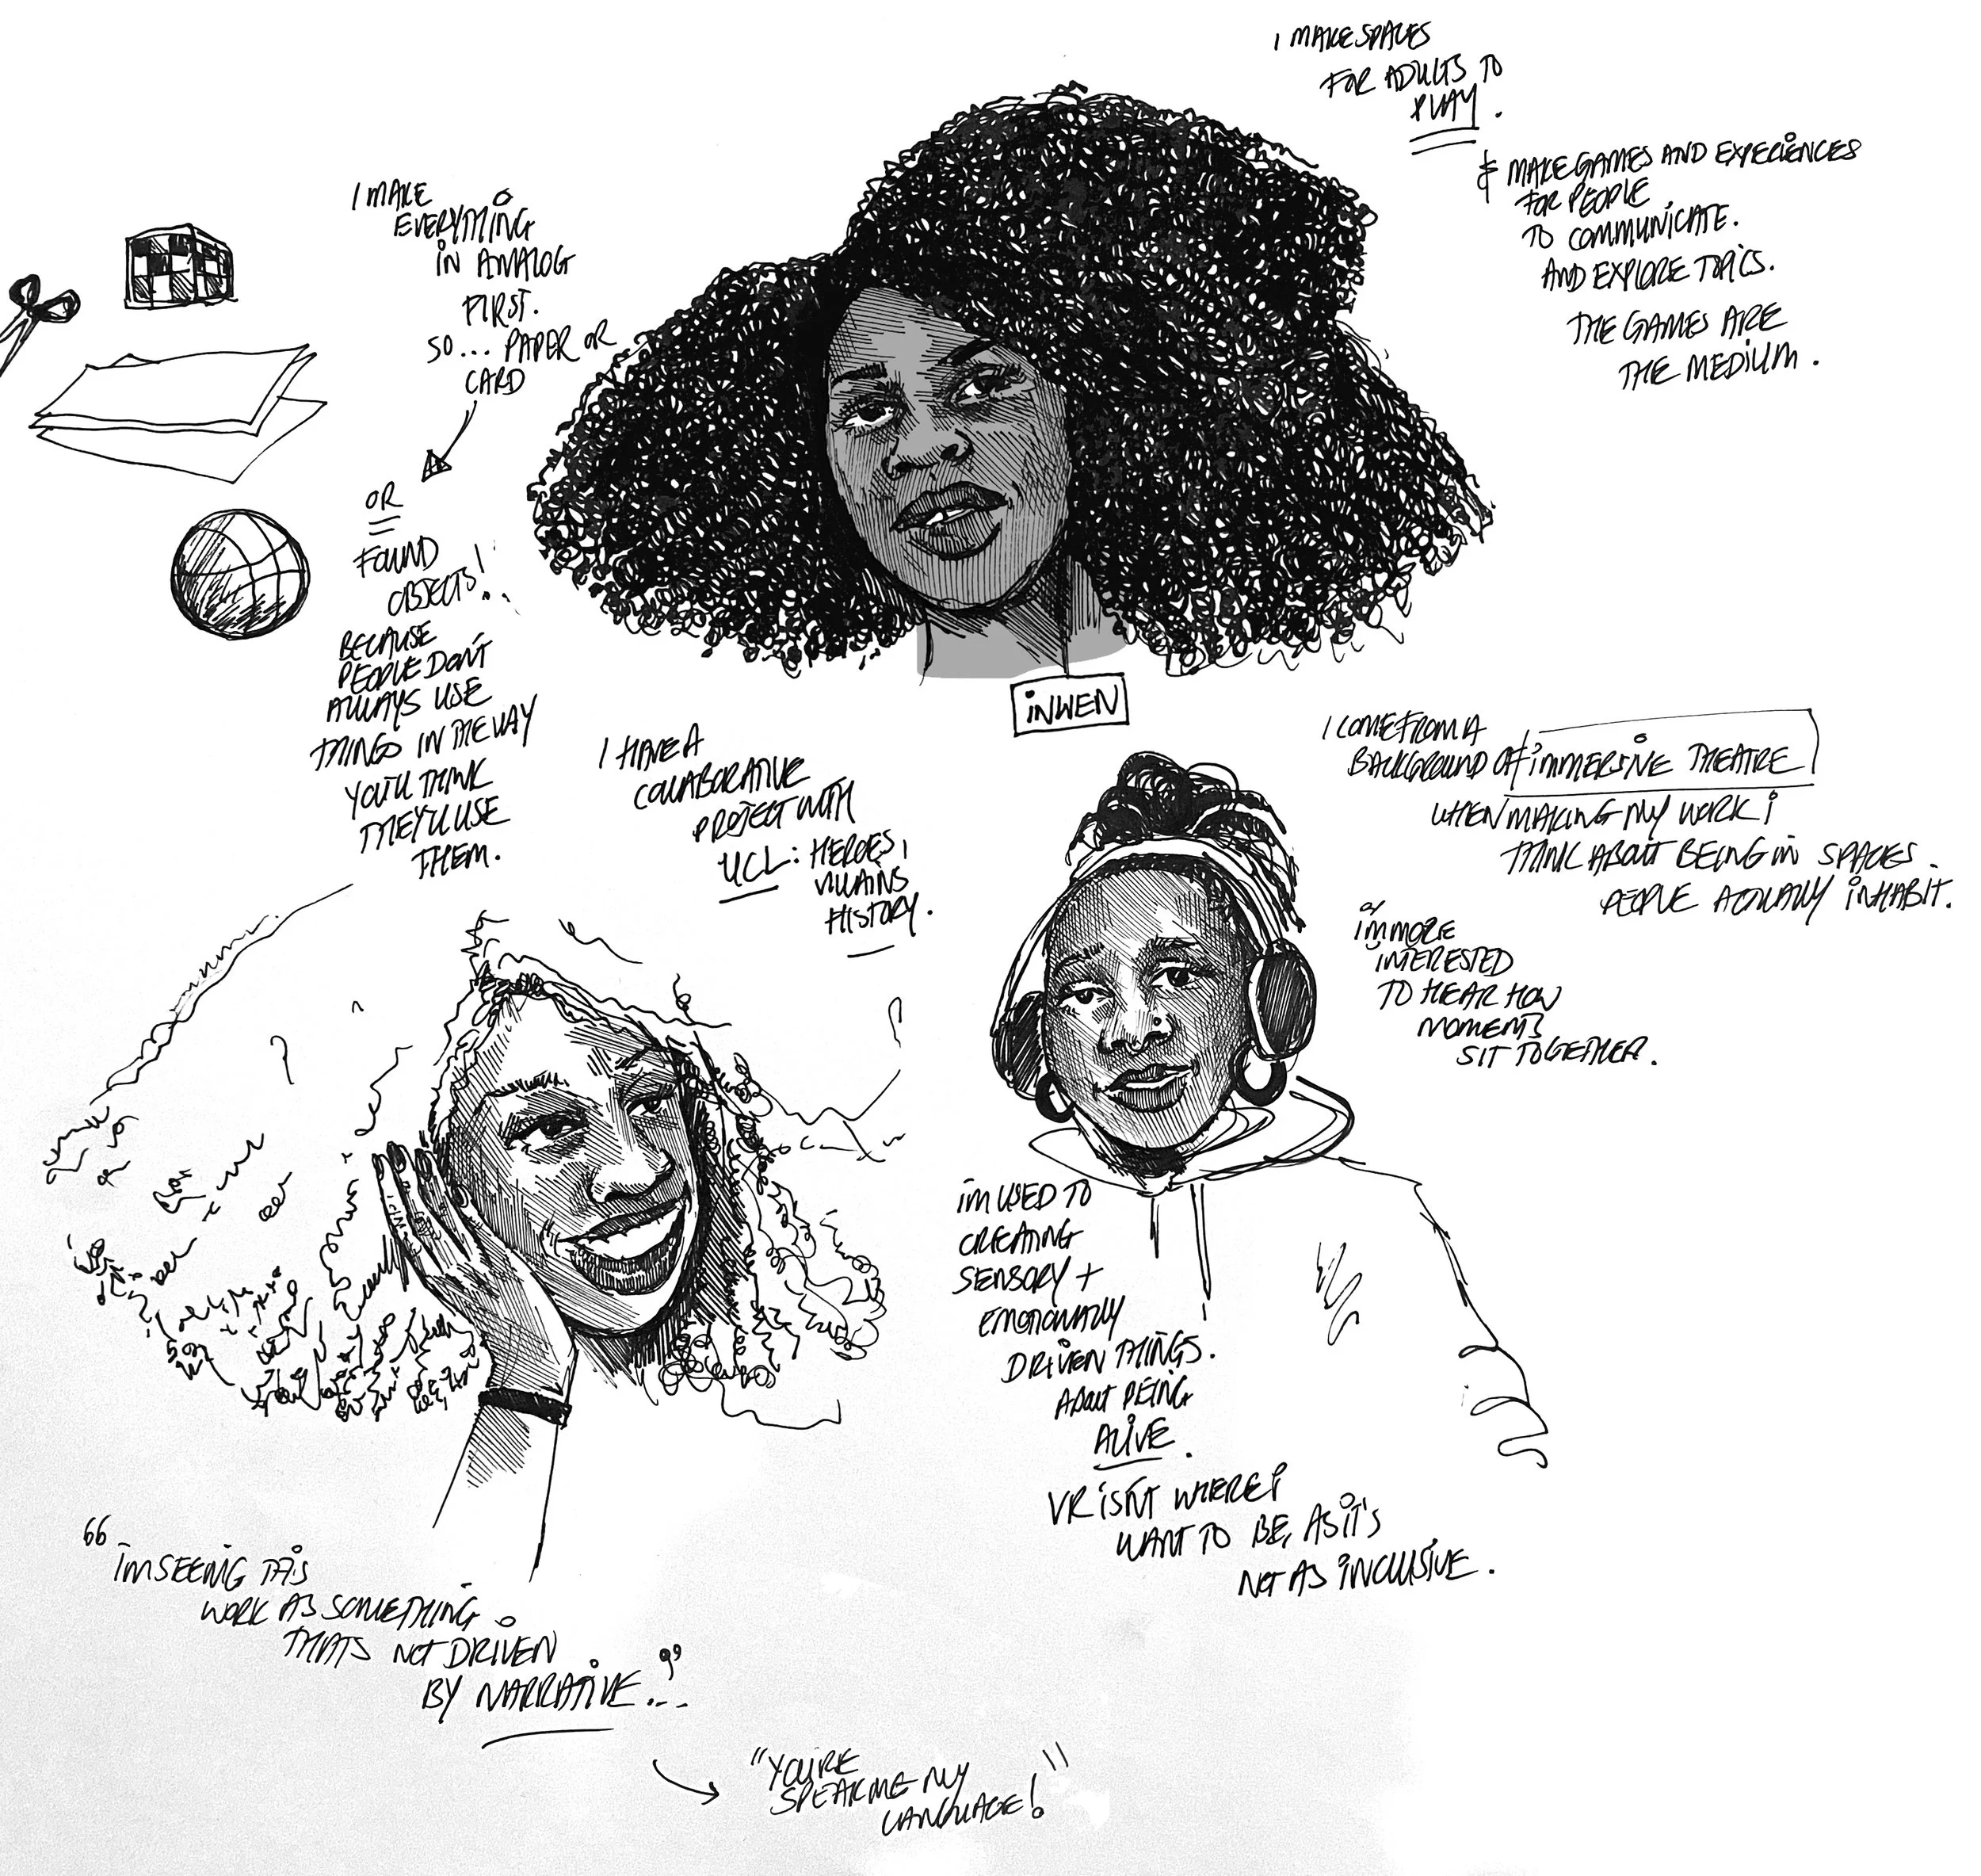 I MAKE SPACES
FOR ADULTS TO
PLAY.
& MAKE GAMES AND EXPERIENCES
FOR PEOPLE
TO COMMUNICATE.
AND EXPLORE TOPICS.
THE GAMES ARE
THE MEDIUM.
I MAKE
EVERYTHING
IN ANALOG
FIRST.
SO... PAPER OR
CARD
OR
FOUND
OBJECTS!..
BECAUSE
PEOPLE DON'T
ALWAYS USE
THINGS IN THE WAY
YOU'LL THINK
THEY'LL USE
THEM.
INWEN
I HAVE A
COLLABORATIVE
PROJECT WITH
UCL: HEROES,
VILLAINS
HISTORY.
I COME FROM A
BACKGROUND OF IMMERSIVE THEATRE
WHEN MAKING MY WORK I
THINK ABOUT BEING IN SPACES
PEOPLE ACTUALLY INHABIT.
I'M MORE
INTERESTED
TO HEAR HOW
MOMENTS
SIT TOGETHER.
I'M USED TO
CREATING
SENSORY +
EMOTIONALLY
DRIVEN THINGS.
ABOUT BEING
ALIVE.
VR ISN'T WHERE I
WANT TO BE, AS IT'S
NOT AS INCLUSIVE.
"I'M SEEING THIS
WORK AS SOMETHING
THATS NOT DRIVEN
BY NARRATIVE..."
"YOU'RE
SPEAKING MY
LANGUAGE!"